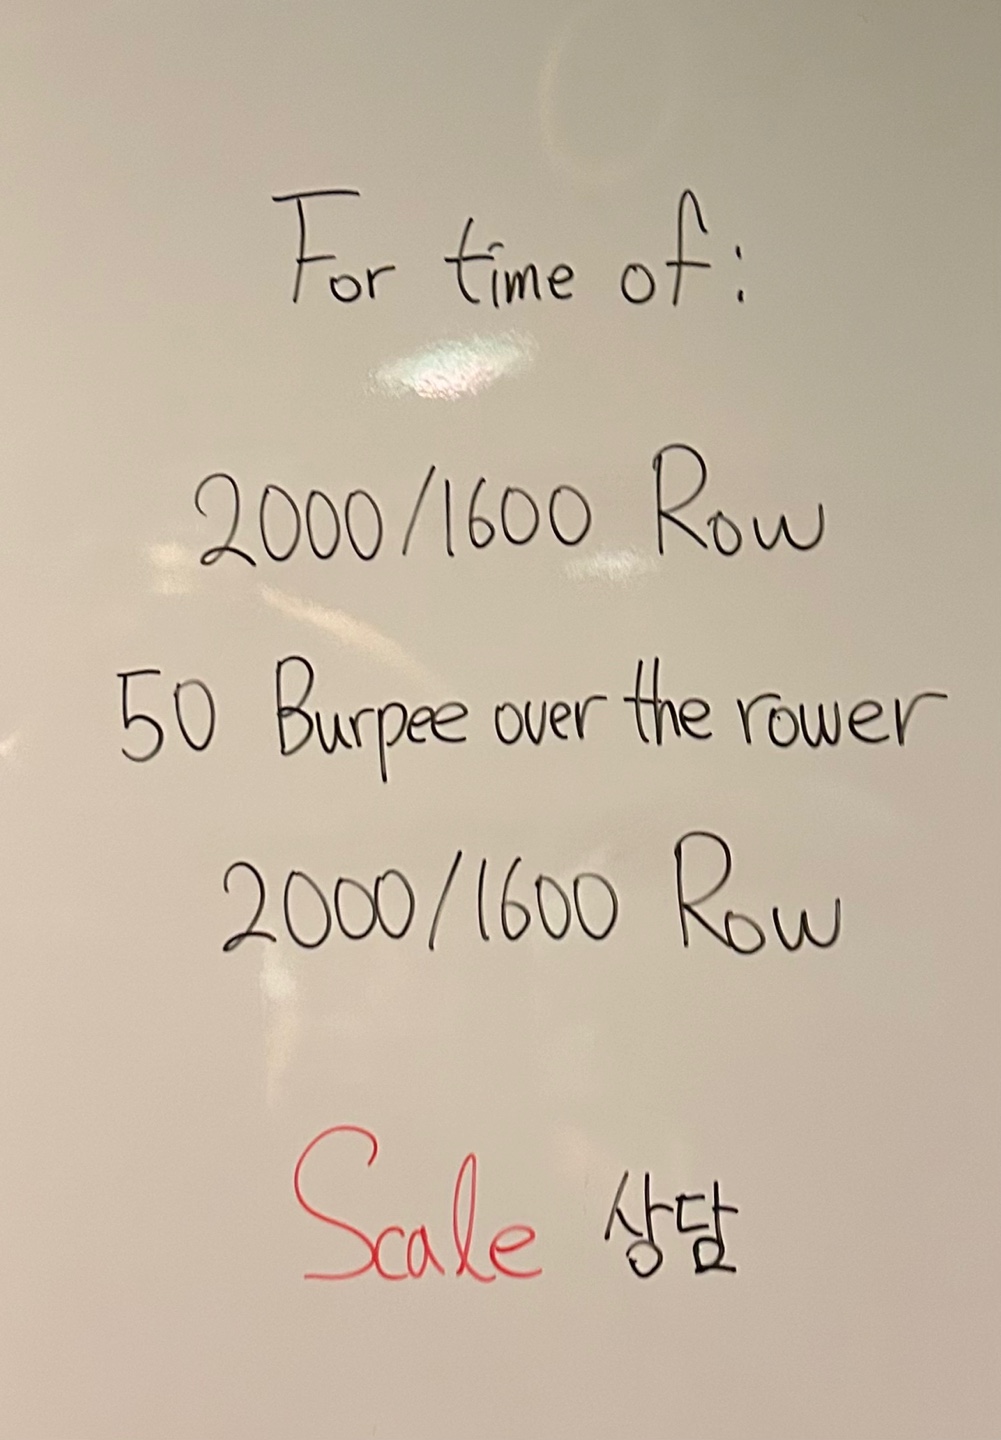 For time of:
2000/1600 Row
50 Burpee over the rower
2000/1600 Row
Scale 상담